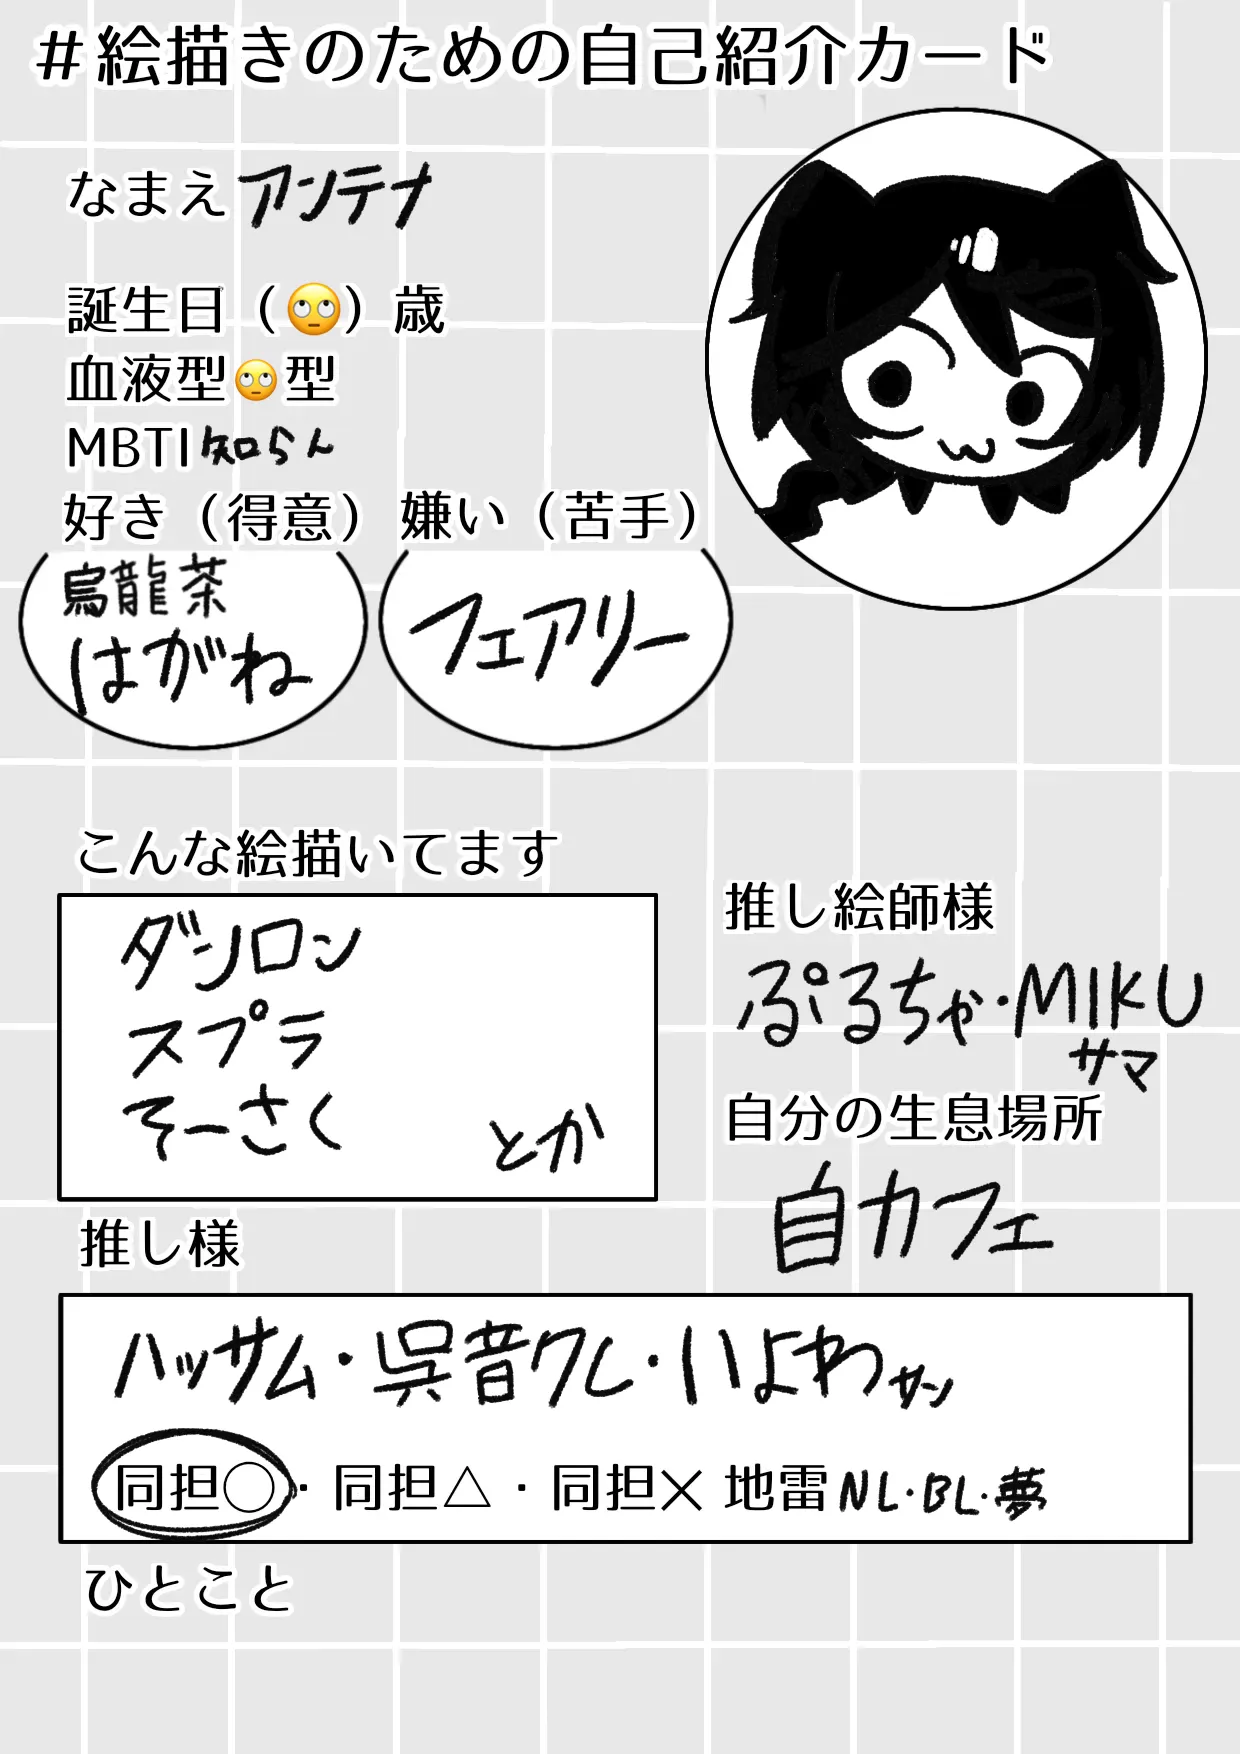 #絵描きのための自己紹介カード
なまえ アンテナ
誕生日（🙄）歳
血液型🙄型
MBTI 知らん
好き（得意） 嫌い（苦手）
烏龍茶
はがね
フェアリー
こんな絵描いてます
ダンロン
スプラ
そーさく とか
推し絵師様
ぷるちゃ・MIKU
サマ
自分の生息場所
自カフェ
推し様
ハッサム・呉音クレ・いよわサン
同担◯・同担△・同担× 地雷 NL・BL・夢
ひとこと